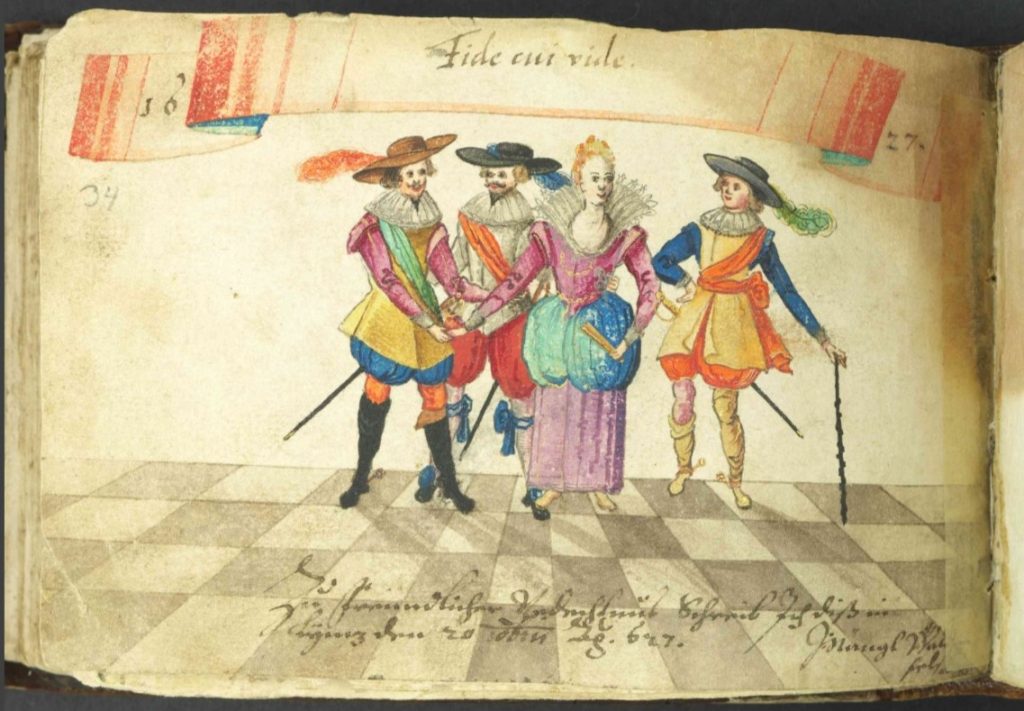 Fide cui vide.
16 27.
34
Zu freundlicher Gedechtnus Schreib Ich diß in
den 20 627.